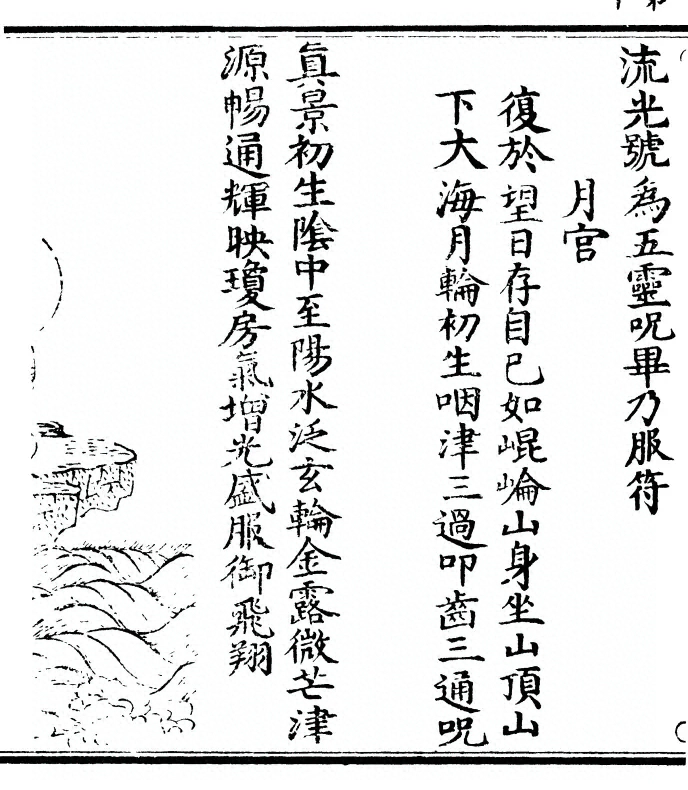 流光號為五靈呪畢乃服符
月宮
復於望日存自己如崐崘山身坐山頂山
下大海月輪初生咽津三過叩齒三通呪
真景初生陰中至陽水泛玄輪金露微芒津
源暢通輝映瓊房氣增光盛服御飛翔